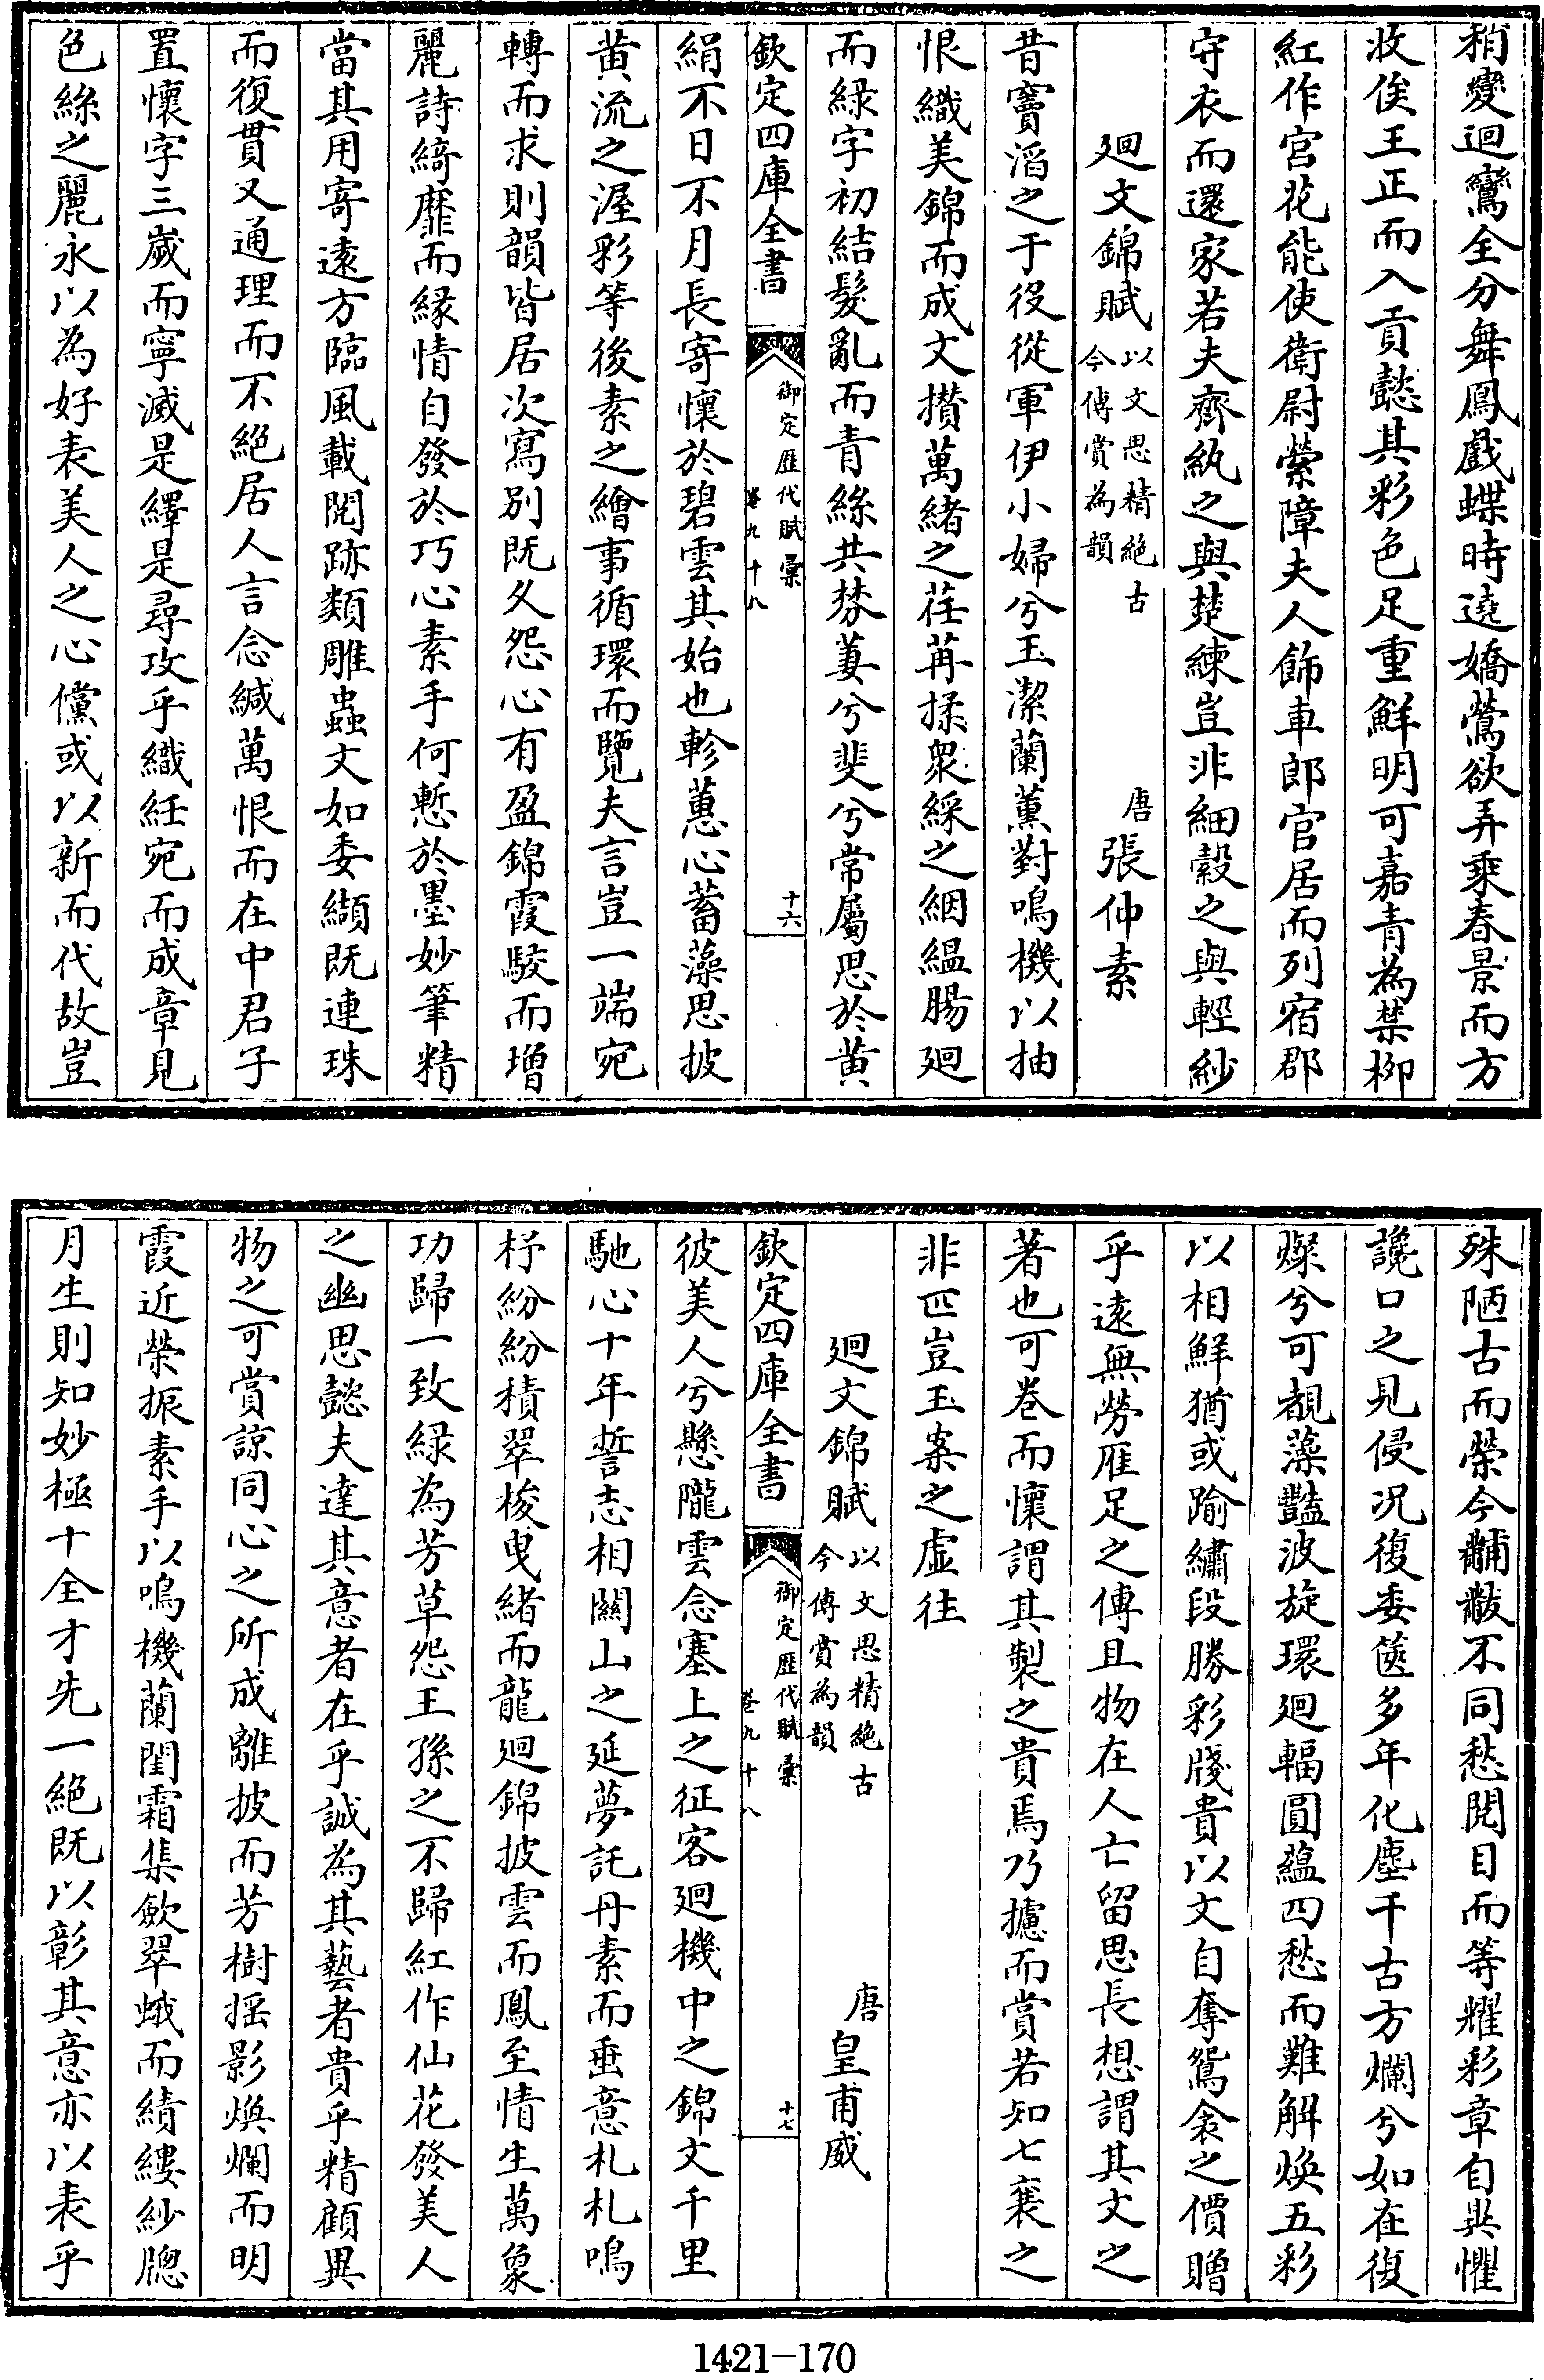 稍變迴鸞全分舞鳳戲蝶時遶嬌鶯欲弄乘春景而方
收俟王正而入貢懿其彩色足重鮮明可嘉青為禁柳
紅作宮花能使衛尉縈障夫人飾車郎官居而列宿郡
守衣而還家若夫齊紈之與楚練豈非細縠之與輕紗
廻文錦賦以文思精絶古今傳賞為韻 唐張仲素
昔竇滔之于役從軍伊小婦兮玉潔蘭薫對鳴機以抽
恨織美錦而成文攢萬緒之荏苒揉衆綵之絪緼腸廻
而緑字初結髮亂而青絲共棼萋兮斐兮常屬思於黄
欽定四庫全書 御定歴代賦彙卷九十八 十六
絹不日不月長寄懷於碧雲其始也軫蕙心蓄藻思披
黄流之渥彩等後素之繪事循環而覽夫言豈一端宛
轉而求則韻皆居次寫别既久怨心有盈錦霞駮而增
麗詩綺靡而緣情自發於巧心素手何慙於墨妙筆精
當其用寄遠方臨風載閲跡類雕蟲文如委纈既連珠
而復貫又通理而不絶居人言念緘萬恨而在中君子
置懷字三嵗而寧滅是繹是尋攻乎織紝宛而成章見
色絲之麗永以為好表美人之心儻或以新而代故豈
殊陋古而榮今黼黻不同愁閲目而等耀彩章自異懼
讒口之見侵况復委篋多年化塵千古方爛兮如在復
燦兮可覩藻豔波旋環廻輻圓藴四愁而難解煥五彩
以相鮮猶或踰繡段勝彩牋貴以文自奪鴛衾之價贈
乎逺無勞雁足之傳且物在人亡留思長想謂其文之
著也可卷而懐謂其製之貴焉乃攄而賞若知七襄之
非匹豈玉案之虚往
廻文錦賦以文思精絶古今傳賞為韻 唐皇甫威
欽定四庫全書 御定歴代賦彙卷九十八 十七
彼美人兮懸隴雲念塞上之征客廻機中之錦文千里
馳心十年誓志相關山之延夢託丹素而垂意札札鳴
杼紛紛積翠梭曳緒而龍廻錦披雲而鳳至情生萬象
功歸一致緑為芳草怨王孫之不歸紅作仙花發美人
之幽思懿夫達其意者在乎誠為其藝者貴乎精顧異
物之可賞諒同心之所成離披而芳樹揺影煥爛而明
霞近榮振素手以鳴機蘭閨霜集斂翠蛾而績縷紗牕
月生則知妙極十全才先一絶既以彰其意亦以表乎
1421-170